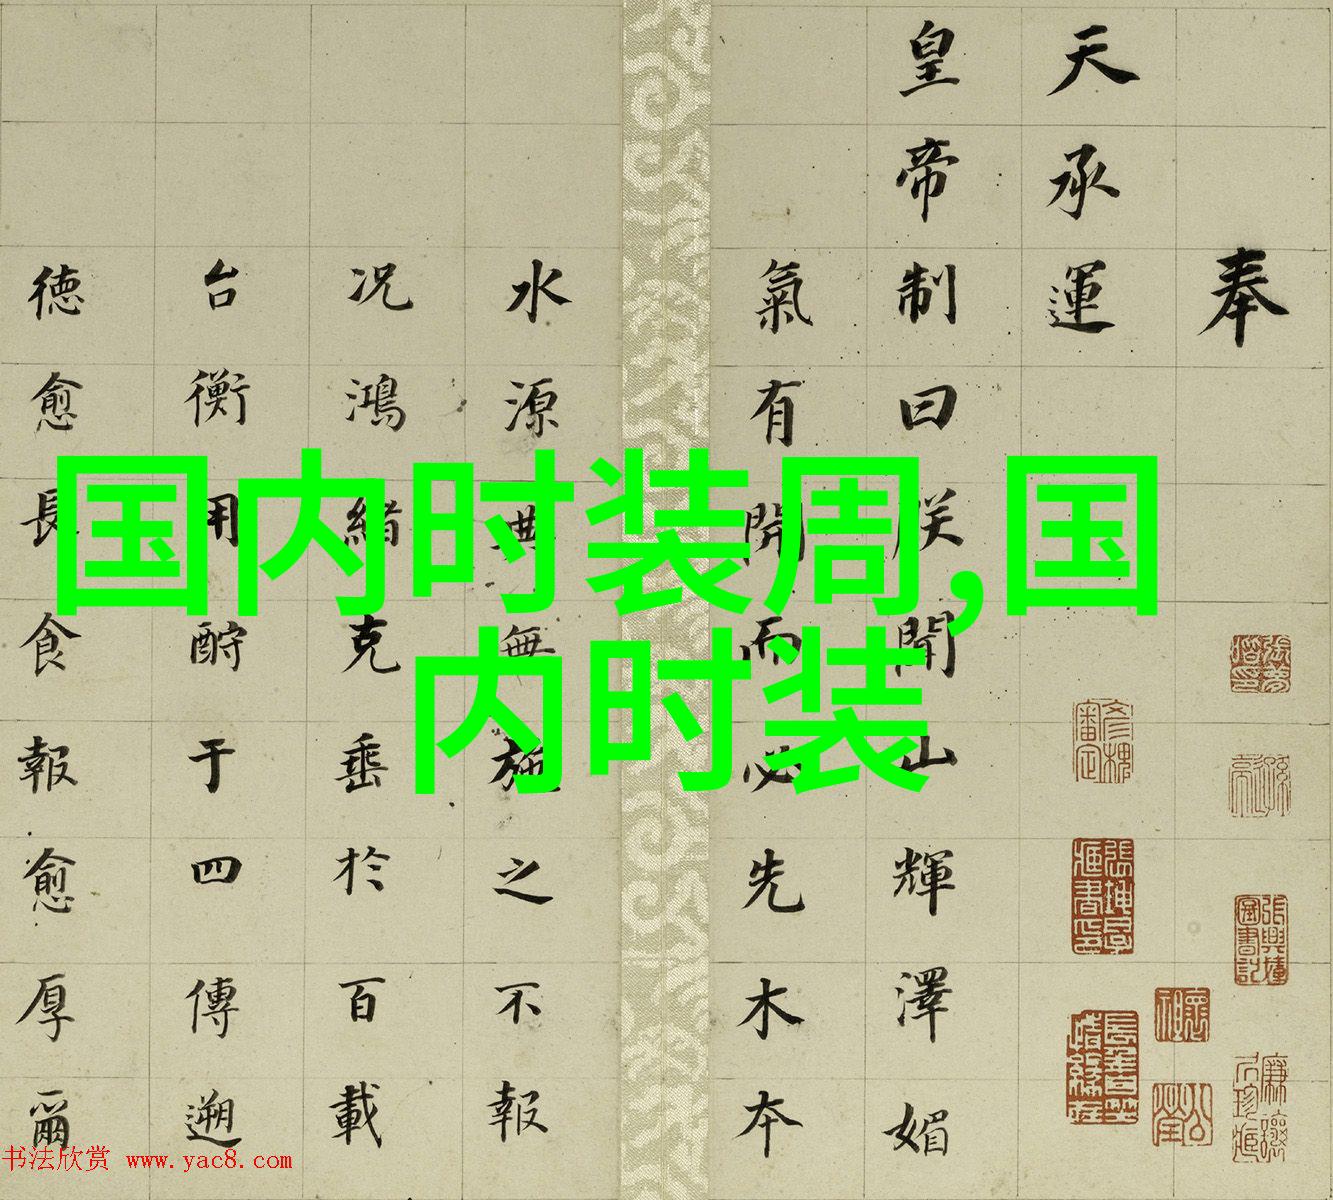 国内时装周,国
内时装
奉
天承運
皇帝制曰朕聞山輝澤媚
氣有開而必先木本
水源典無施之不報
况鴻緒克垂於百載
台衡用酧于四傳遡
德愈長食報愈厚爾
书法欣赏 www.yac8.com